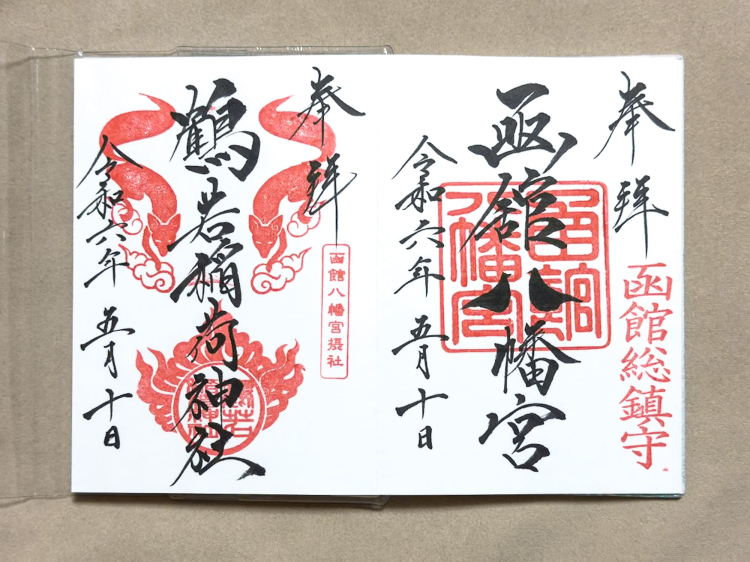 奉拝
函館総鎮守
函館八幡宮
函館八幡宮
令和六年五月十日
奉拝
函館八幡宮摂社
鶴若稲荷神社
令和六年五月十日